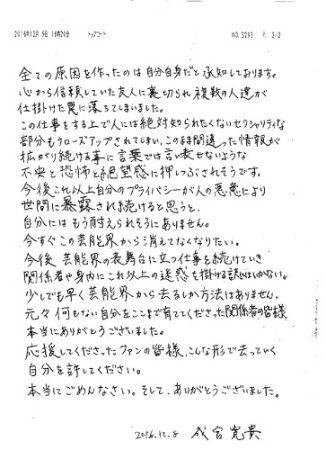 2016年12月 9日 16時20分 トップコート NO. 3293 P. 2/2
全ての原因を作ったのは自分自身だと承知しております。
心から信頼していた友人に裏切られ複数の人達が
仕掛けた罠に落ちてしまいました。
この仕事をする上で人には絶対知られたくないセクシャリティな
部分もクローズアップされてしまい、このまま間違った情報が
拡がり続ける事に言葉では言い表せないような
不安と恐怖と絶望感に押しつぶされそうです。
今後これ以上自分のプライバシーが人の悪意により
世間に暴露され続けると思うと、
自分にはもう耐えられそうにありません。
今すぐこの芸能界から消えてなくなりたい。
今後芸能界の表舞台に立つ仕事を続けていき
関係者や身内にこれ以上の迷惑を掛ける訳にはいかない。
少しでも早く芸能界から去るしか方法はありません。
元々何もない自分をここまで育ててくださった関係者の皆様
本当にありがとうございました。
応援してくださったファンの皆様、こんな形で去っていく
自分を許してください。
本当にごめんなさい。そして、ありがとうございました。
2016.12.8 成宮寛貴